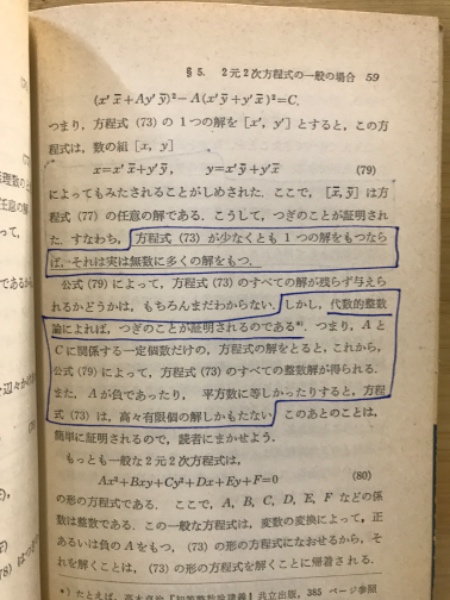 §5. 2元2次方程式の一般の場合 59
(x′x̄+Ay′ȳ)²−A(x′ȳ+y′x̄)²=C.
つまり，方程式 (73) の 1つの解を [x′, y′] とすると，この方
程式は，数の組 [x, y]
x=x′x̄+y′ȳ, y=x′ȳ+y′x̄ (79)
によってもみたされることがしめされた．ここで，[x̄, ȳ] は方
程式 (77) の任意の解である．こうして，つぎのことが証明され
た．すなわち，方程式 (73) が少なくとも 1 つの解をもつなら
ば，それは実は無数に多くの解をもつ．
公式 (79) によって，方程式 (73) のすべての解が残らず与えら
れるかどうかは，もちろんまだわからない．しかし，代数的整数
論によれば，つぎのことが証明されるのである*)．つまり，A と
C に関係する一定個数だけの，方程式の解をとると，これから，
公式 (79) によって，方程式 (73) のすべての整数解が得られる．
また，A が負であったり，平方数に等しかったりすると，方程
式 (73) は，高々有限個の解しかもたない．このあとのことは，
簡単に証明されるので，読者にまかせよう．
もっとも一般な 2元2次方程式は，
Ax²+Bxy+Cy²+Dx+Ey+F=0 (80)
の形の方程式である．ここで，A, B, C, D, E, F などの係
数は整数である．この一般な方程式は，変数の変換によって，正
あるいは負の A をもつ，(73) の形の方程式になおせるから，そ
れを解くことは，(73) の形の方程式を解くことに帰着される．
*) たとえば，高木貞治『初等整数論講義』共立出版，385 ページ参照
任意の解
って，
であるか